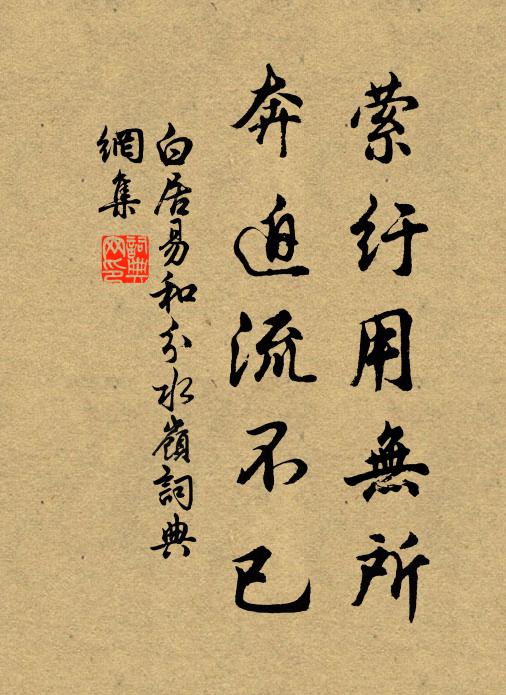 萦紆用無所
奔迫流不已
白居易和分水嶺詞典
網集
詞典
网印